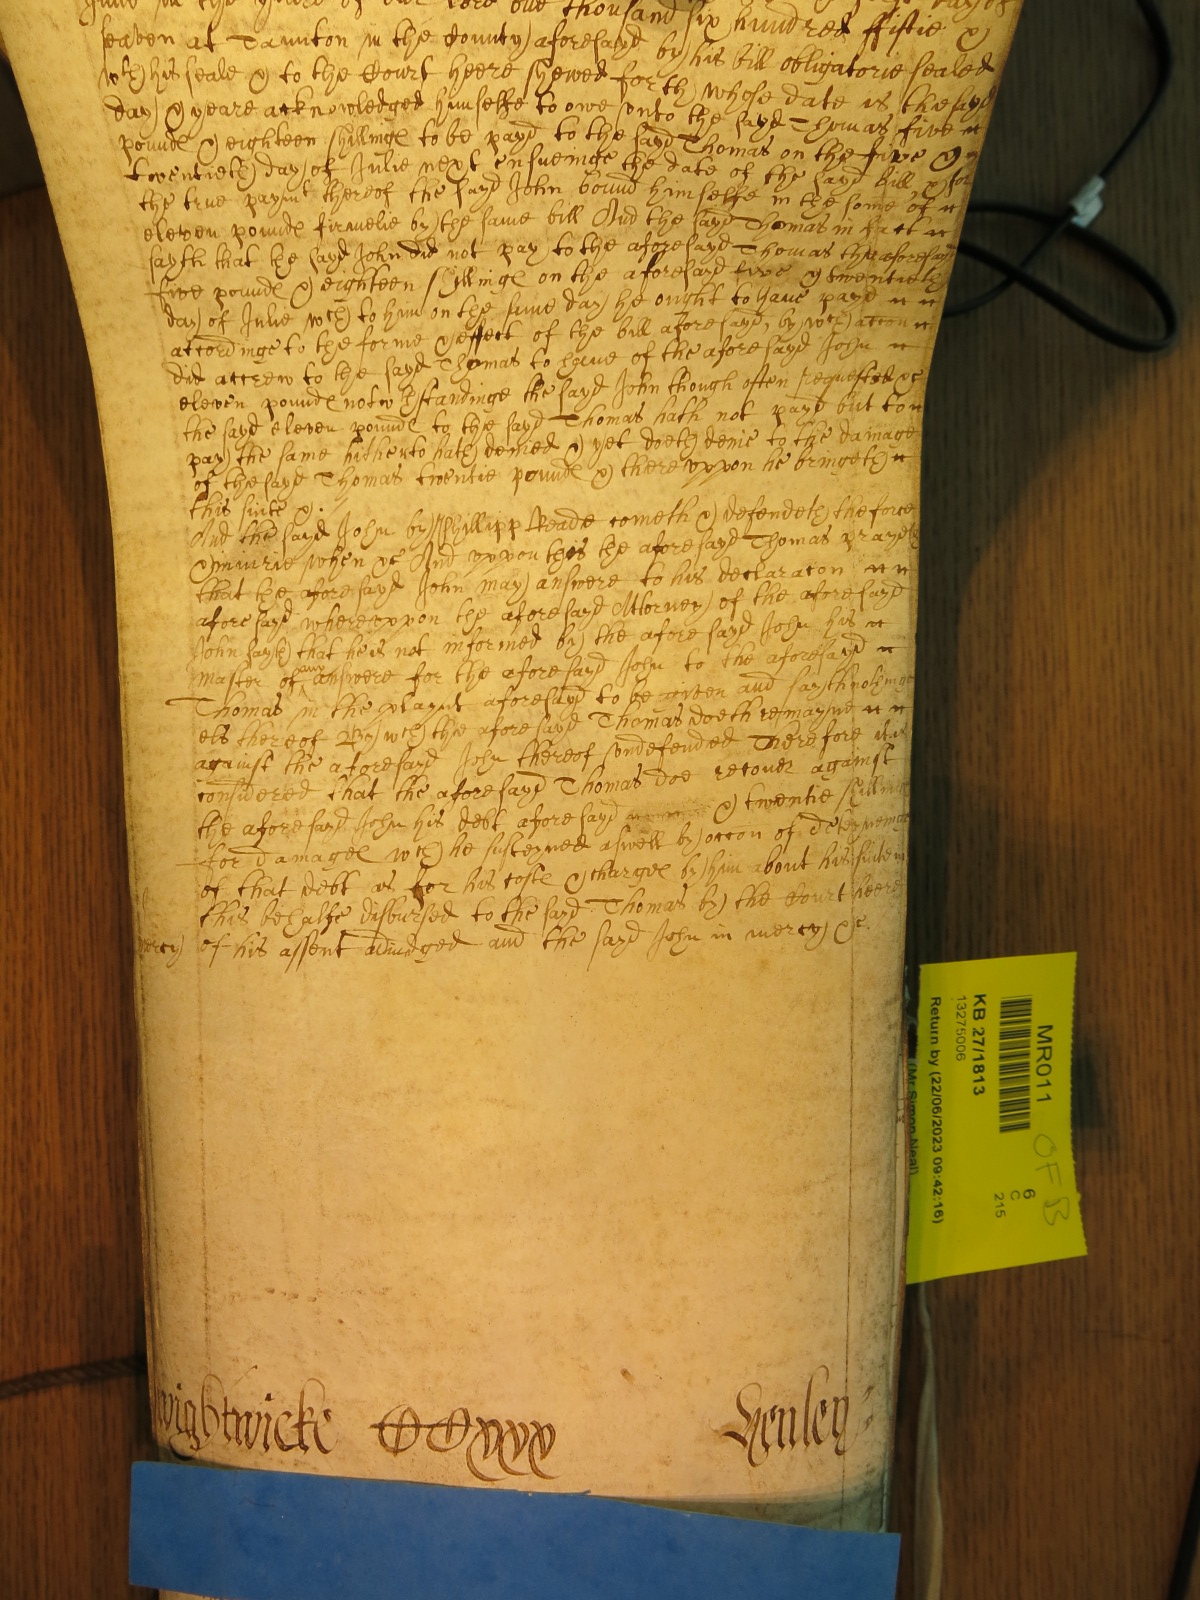 in the yeare of our Lord one thousand six hundred fiftie &
seaven at Taunton in the County aforesayd by his bill obligatorie sealed
wth his seale & to the Court heere shewed forth whose date is the sayd
day & yeare acknowledged himselfe to owe unto the sayd Thomas five
pound & eighteen shillings to be payd to the sayd Thomas on the five &
twentieth day of Julie next ensueinge the date of the sayd bill & for
the true paymt thereof the sayd John bound himselfe in the some of
eleven pounds firmelie by the same bill And the sayd Thomas in fact
sayth that he sayd John did not pay to the aforesayd Thomas the aforesayd
five pounds & eighteen shillings on the aforesayd five & twentieth
day of Julie wch to him on the same day he ought to have payd
accordinge to the forme & effect of the bill aforesayd, by wch accon
did accrew to the sayd Thomas to have of the aforesayd John
eleven pounds notwthstandinge the sayd John though often requested &c
the sayd eleven pounds to the sayd Thomas hath not payd but to
pay the same hitherto hath denied & yet doeth denie to the damage
of the sayd Thomas twentie pounds & thereuppon he bringeth
this suite &c.
And the sayd John by Phillipp Reade cometh & defendeth the force
& iniurie when &c And uppon this the aforesayd Thomas prayeth
that the aforesayd John may answere to his declaracon
aforesayd whereuppon the aforesayd Attorney of the aforesayd
John sayth that he is not informed by the aforesayd John his
master of any answere for the aforesayd John to the aforesayd
Thomas in the playnt aforesayd to be given and sayth nothinge
els thereof By wch the aforesayd Thomas doeth remayne
against the aforesayd John thereof undefended Therefore it is
considered that the aforesayd Thomas doe recover against
the aforesayd John his debt aforesayd & twentie shillings
for damages wch he susteyned aswell by occon of deteyneing
of that debt as for his costs & charges by him about his suite in
this behalfe disbursed to the sayd Thomas by the Court heere
mercy of his assent adiudged and the sayd John in mercy &c.
Wightwicke CCxxx Henley
MR011
KB 27/1813
13275006
Return by (22/06/2023 09:42:16)
(Mr Simon Neal)
6
C
215
OF B